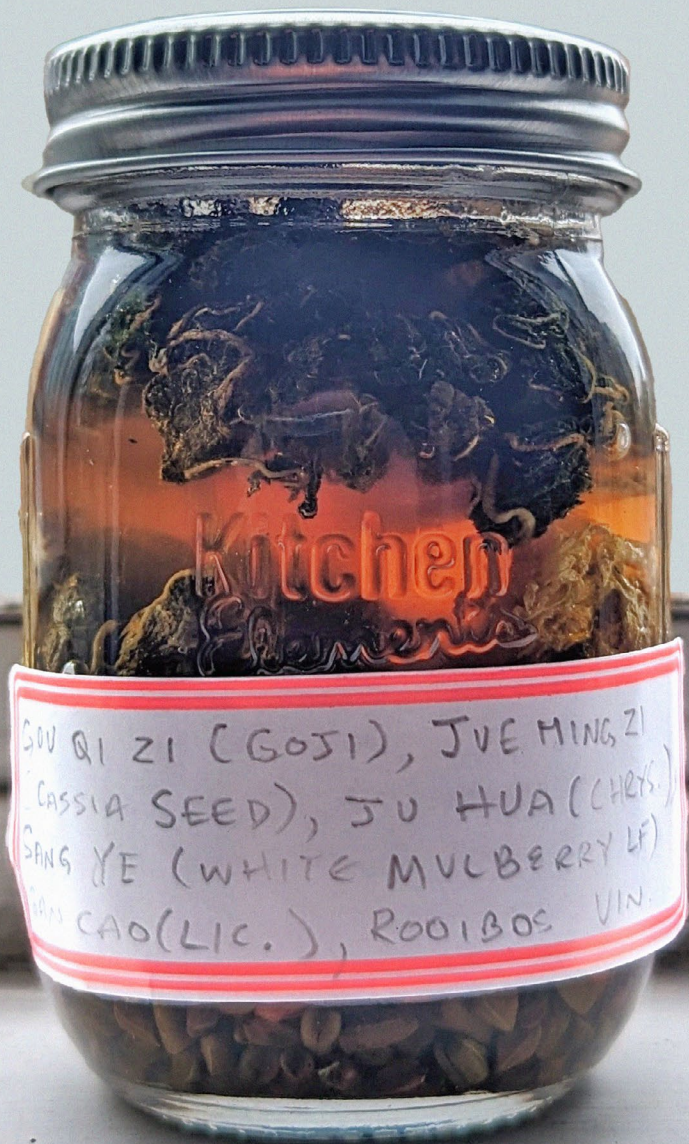 Kitchen
Elements
GOU QI ZI (GOJI), JUE MING ZI
(CASSIA SEED), JU HUA (CHRYS.),
SANG YE (WHITE MULBERRY LF)
GAN CAO (LIC.), ROOIBOS VIN.